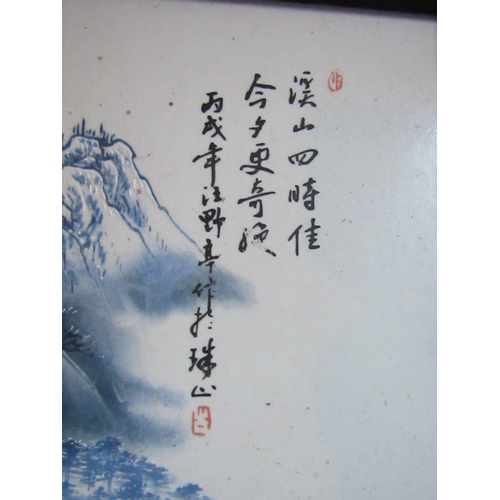 溪山四時佳
今夕更奇絶
丙戌年汪野亭作於珠山